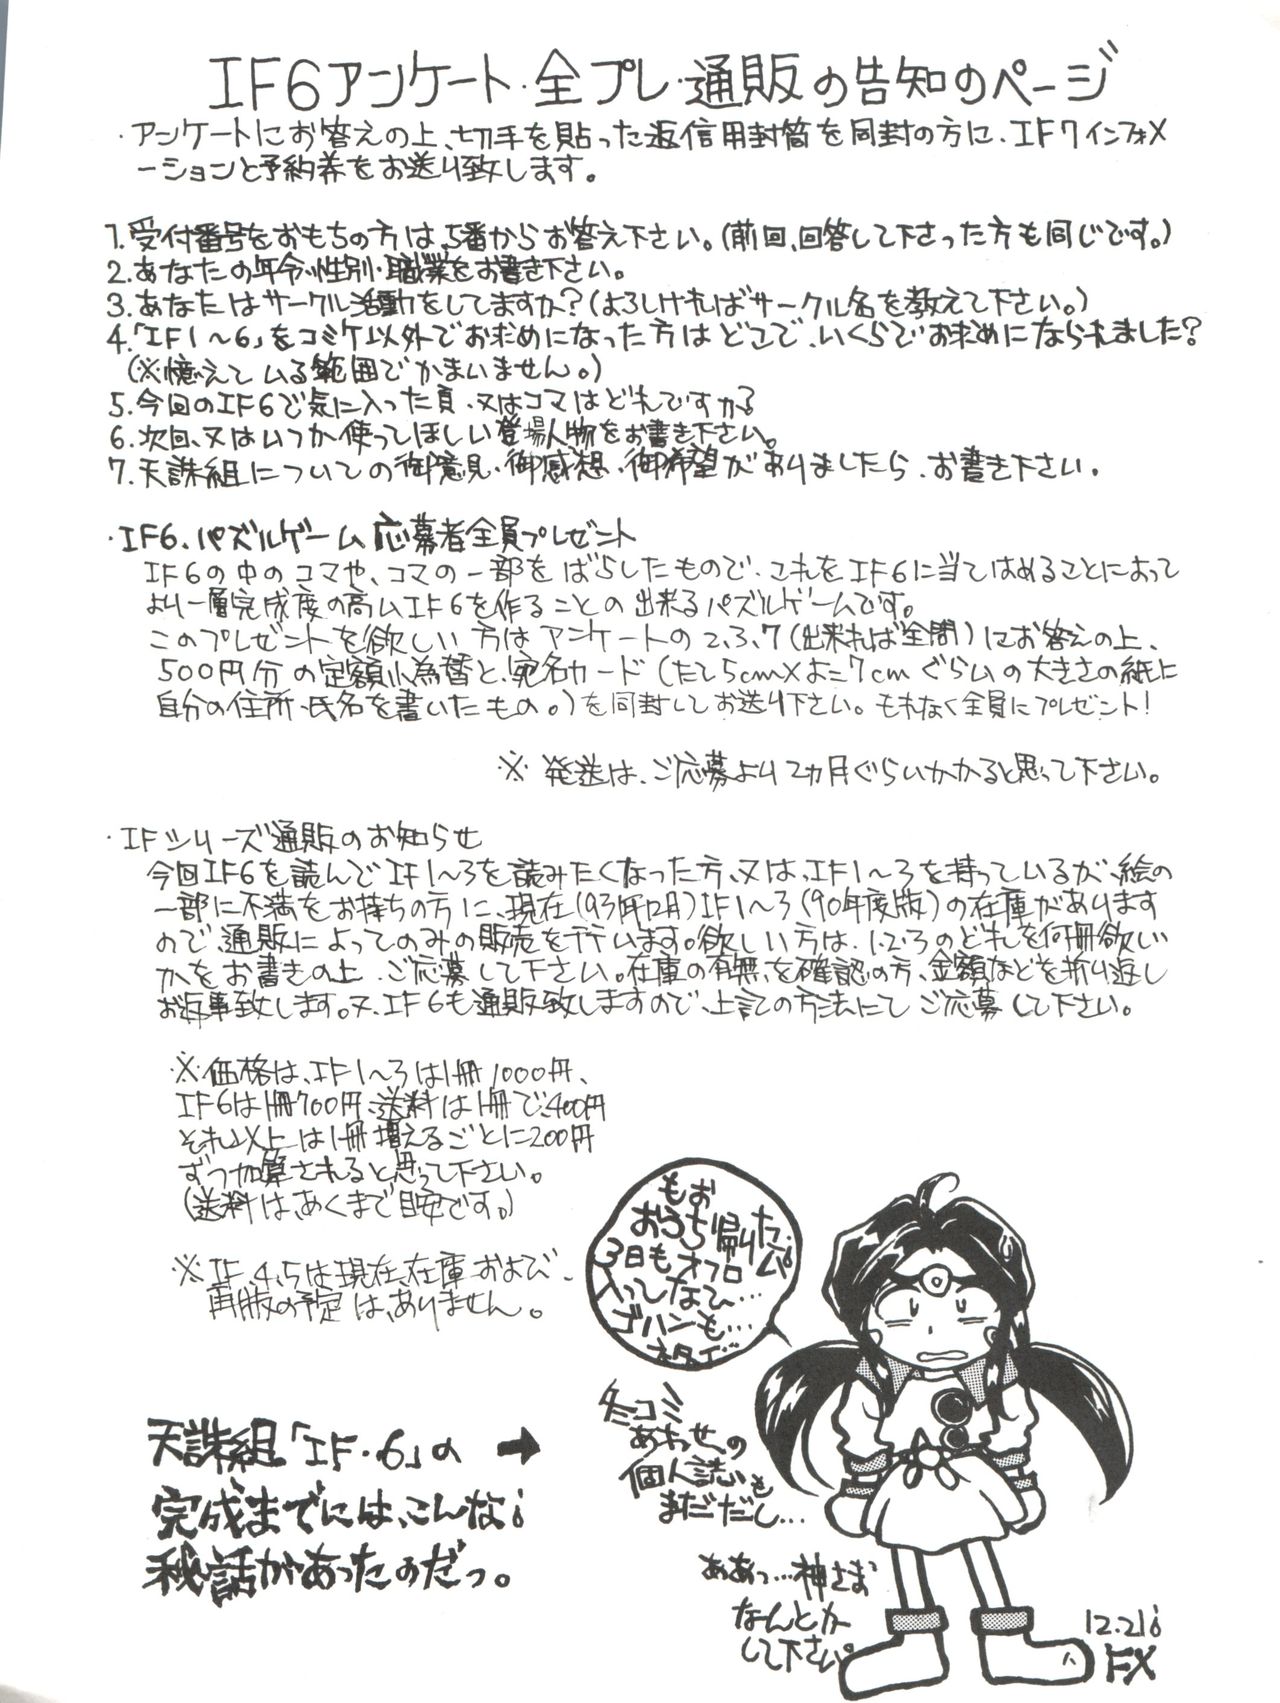 IF6アンケート・全プレ・通販の告知のページ
・アンケートにお答えの上、切手を貼った返信用封筒を同封の方に、IF7インフォメ
ーションと予約券をお送り致します。
1.受付番号をおもちの方は、5番からお答え下さい。(前回、回答して下さった方も同じです。)
2.あなたの年令・性別・職業をお書き下さい。
3.あなたはサークル活動をしてますか?(よろしければサークル名を教えて下さい。)
4.「IF1〜6」をコミケ以外でお求めになった方はどこで、いくらでお求めになられました?
(※憶えている範囲でかまいません。)
5.今回のIF6で気に入った頁、又はコマはどれですか?
6.次回、又はいつか使ってほしい登場人物をお書き下さい。
7.天誅組についての御意見・御感想・御希望がありましたら、お書き下さい。
・IF6、パズルゲーム応募者全員プレゼント
IF6の中のコマや、コマの一部をばらしたもので、これをIF6に当てはめることによって
より一層完成度の高いIF6を作ることの出来るパズルゲームです。
このプレゼントを欲しい方はアンケートの2、3、7(出来れば全問)にお答えの上、
500円分の定額小為替と、宛名カード(たて5cm×よこ7cmぐらいの大きさの紙に
自分の住所・氏名を書いたもの。)を同封してお送り下さい。もれなく全員にプレゼント!
※発送は、ご応募より2ヵ月ぐらいかかると思って下さい。
・IFシリーズ通販のお知らせ
今回IF6を読んでIF1〜3を読みたくなった方、又は、IF1〜3を持っているが、絵の
一部に不満をお持ちの方に、現在(93年12月)IF1〜3(90年度版)の在庫があります
ので、通販によってのみの販売を行います。欲しい方は、1・2・3のどれを何冊欲しい
かをお書きの上、ご応募して下さい。在庫の有無を確認の方、金額などを折り返し
お返事致します。又、IF6も通販致しますので、上記の方法にてご応募して下さい。
※価格は、IF1〜3は1冊1000円、
IF6は1冊700円、送料は1冊で、400円
それ以上は1冊増えるごとに200円
ずつ加算されると思って下さい。
(送料は、あくまで目安です。)
※IF、4、5は現在、在庫および、
再販の予定は、ありません。
もお
おうち帰りたい。
3日もオフロ
入ってないひ…
ゴハンも…
冬コミ
あわせの
個人誌いも
まだだし…
天誅組「IF・6」の→
完成までには、こんな
秘話があったのだっ。
ああっ…神さま
なんとか
して下さい。
12.21
FX